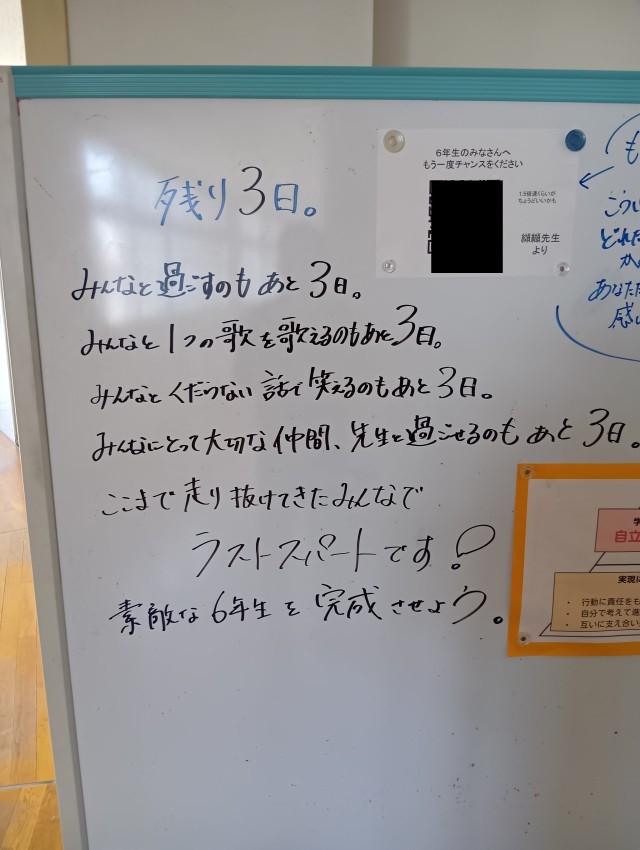 残り3日。
みんなと過ごすのもあと3日。
みんなと1つの歌を歌えるのもあと3日。
みんなとくだらない話で笑えるのもあと3日。
みんなにとって大切な仲間、先生と過ごせるのもあと3日。
ここまで走り抜けてきたみんなで
ラストスパートです!
素敵な6年生を完成させよう。
6年生のみなさんへ
もう一度チャンスをください
1.5倍速くらいが
ちょうどいいかも
先生
より
も
こうい
どれだ
あなた
感じ
自立
実現に
・ 行動に責任をも
・ 自分で考えて進
・ 互いに支え合い